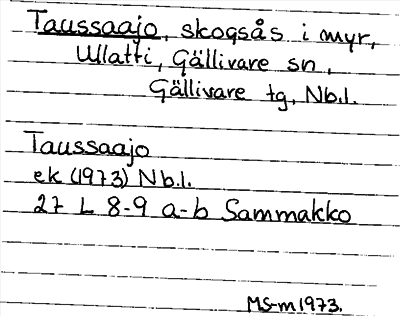 Taussaajo, skogsås i myr,
Ullatti, Gällivare sn,
Gällivare tg, Nb.l.
Taussaajo
ek (1973) Nb.l.
27 L 8-9 a-b Sammakko
MS-m 1973.